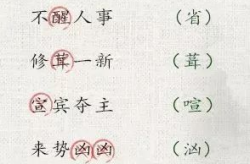 不醒人事 （省）
修茸一新 （葺）
宣宾夺主 （喧）
来势凶凶 （汹）